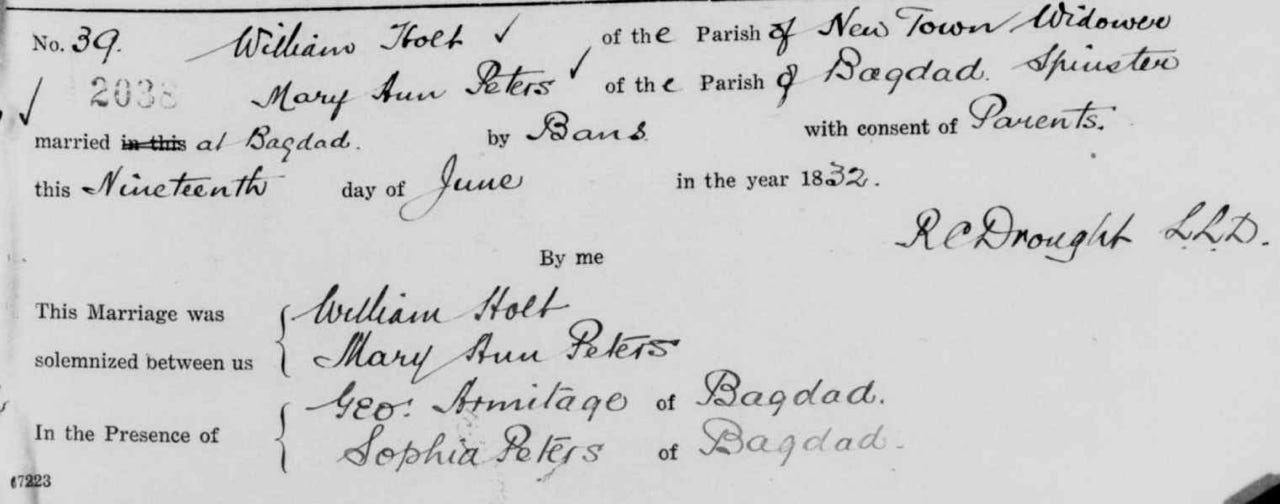 No. 39. William Holt ✓ of the Parish of New Town Widower
2038 Mary Ann Peters ✓ of the Parish of Bagdad. Spinster
married in this at Bagdad. by Bans. with consent of Parents.
this Nineteenth day of June in the year 1832.
R C Drought L.L.D.
By me
This Marriage was William Holt
solemnized between us Mary Ann Peters
Geo. Armitage of Bagdad.
In the Presence of
Sophia Peters of Bagdad.
17223